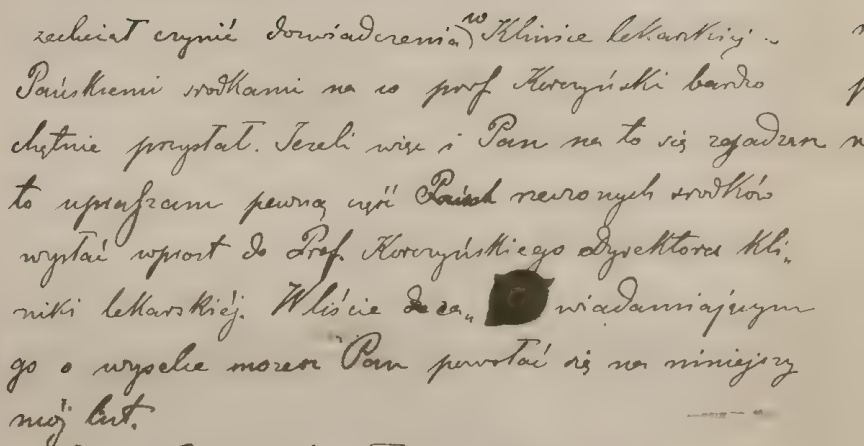 zechciał czynić doświadczenia w Klinice lekarskiej
Pańskiemi srodkami na co prof Korczyński bardzo
chętnie przystał. Jezeli więc i Pan na to się zgadzasz
to upraszam pewną część rzeczonych srodków
wysłać wprost do Prof. Korczyńskiego Dyrektora Kli„
niki lekarskiéj. W liście za„ wiadamiającym
go o wysełce mozesz Pan powołać się na niniejszy
mój list.